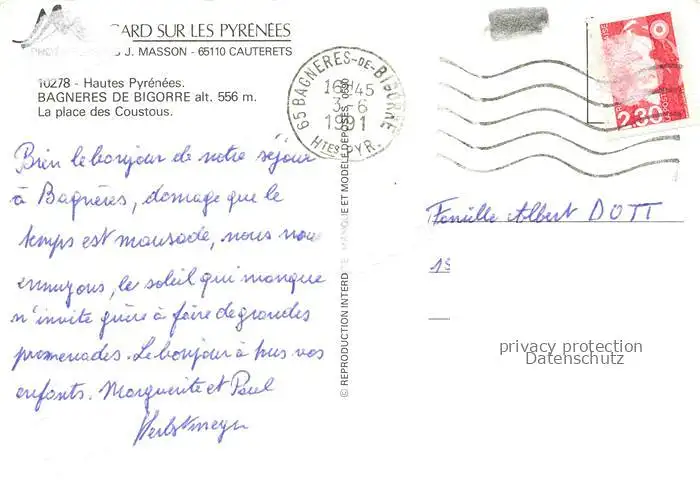 GARD SUR LES PYRÉNÉES
J. MASSON - 65110 CAUTERETS
10278 - Hautes Pyrénées.
BAGNERES DE BIGORRE alt. 556 m.
La place des Coustous.
Bien le bonjour de notre séjour
à Bagnères, domage que le
temps est mausade, nous nous
ennuyons, le soleil qui manque
n'invite guère à faire de grandes
promenades. Le bonjour à tous vos
enfants. Marguerite et Paul
Herbstmeyer
© REPRODUCTION INTERDITE MARQUE ET MODELE DEPOSES
65 BAGNERES-DE-BIGORRE
16H45
3-6
1991
HTES PYR.
2,30
Famille Albert DOTT
18
privacy protection
Datenschutz